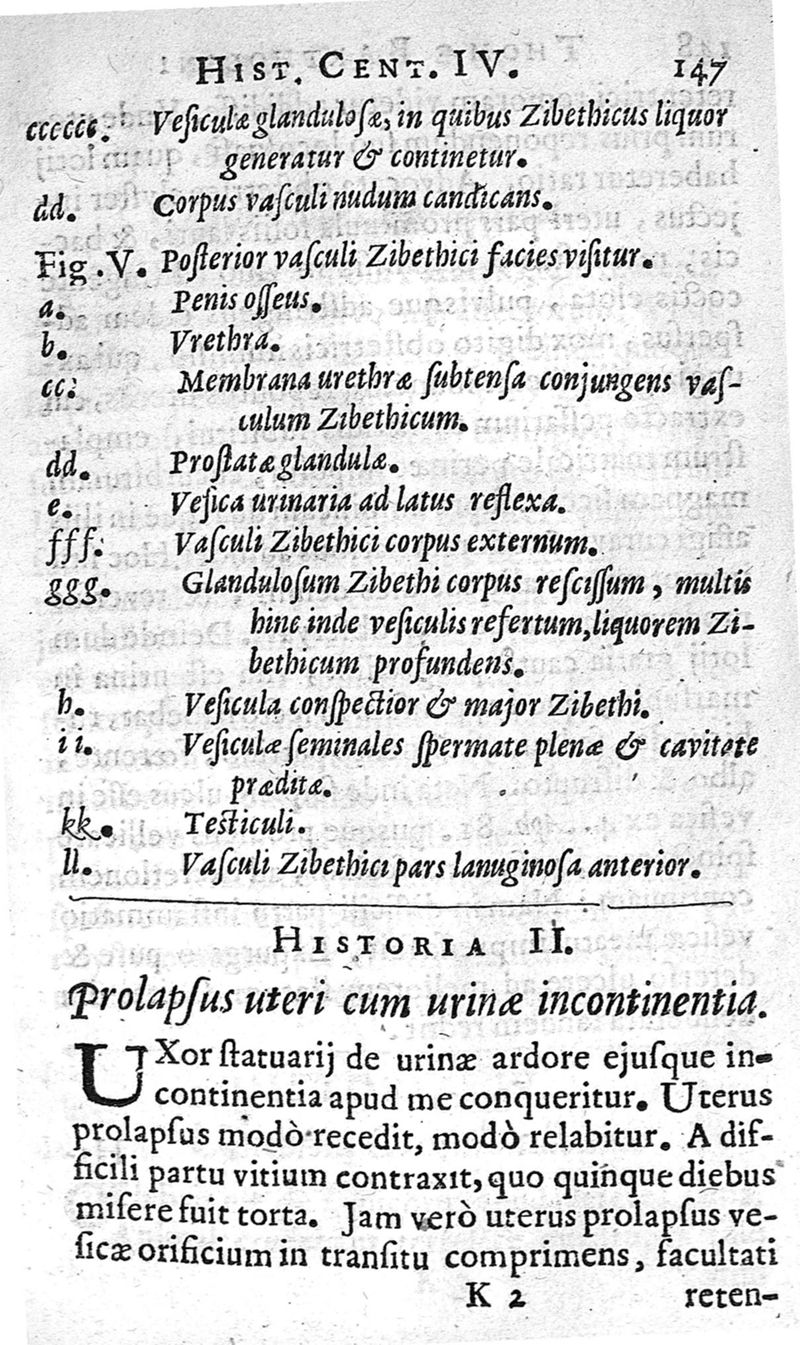 HIST. CENT. IV. 147
cccccc. Veſiculæ glanduloſæ, in quibus Zibethicus liquor
generatur & continetur.
dd. Corpus vaſculi nudum candicans.
Fig. V. Poſterior vaſculi Zibethici facies viſitur.
a. Penis oſſeus.
b. Vrethra.
cc. Membrana urethræ ſubtenſa conjungens vaſ-
culum Zibethicum.
dd. Proſtatæ glandulæ.
e. Veſica urinaria ad latus reflexa.
fff. Vaſculi Zibethici corpus externum.
ggg. Glanduloſum Zibethi corpus reſciſſum, multis
hinc inde veſiculis refertum, liquorem Zi-
bethicum profundens.
h. Veſicula conſpectior & major Zibethi.
ii. Veſiculæ ſeminales ſpermate plenæ & cavitate
præditæ.
kk. Teſticuli.
ll. Vaſculi Zibethici pars lanuginoſa anterior.
HISTORIA II.
Prolapſus uteri cum urinæ incontinentia.
UXor ſtatuarij de urinæ ardore ejuſque in-
continentia apud me conqueritur. Uterus
prolapſus modò recedit, modò relabitur. A dif-
ficili partu vitium contraxit, quo quinque diebus
miſere fuit torta. Jam verò uterus prolapſus ve-
ſicæ orificium in tranſitu comprimens, facultati
K 2 reten-